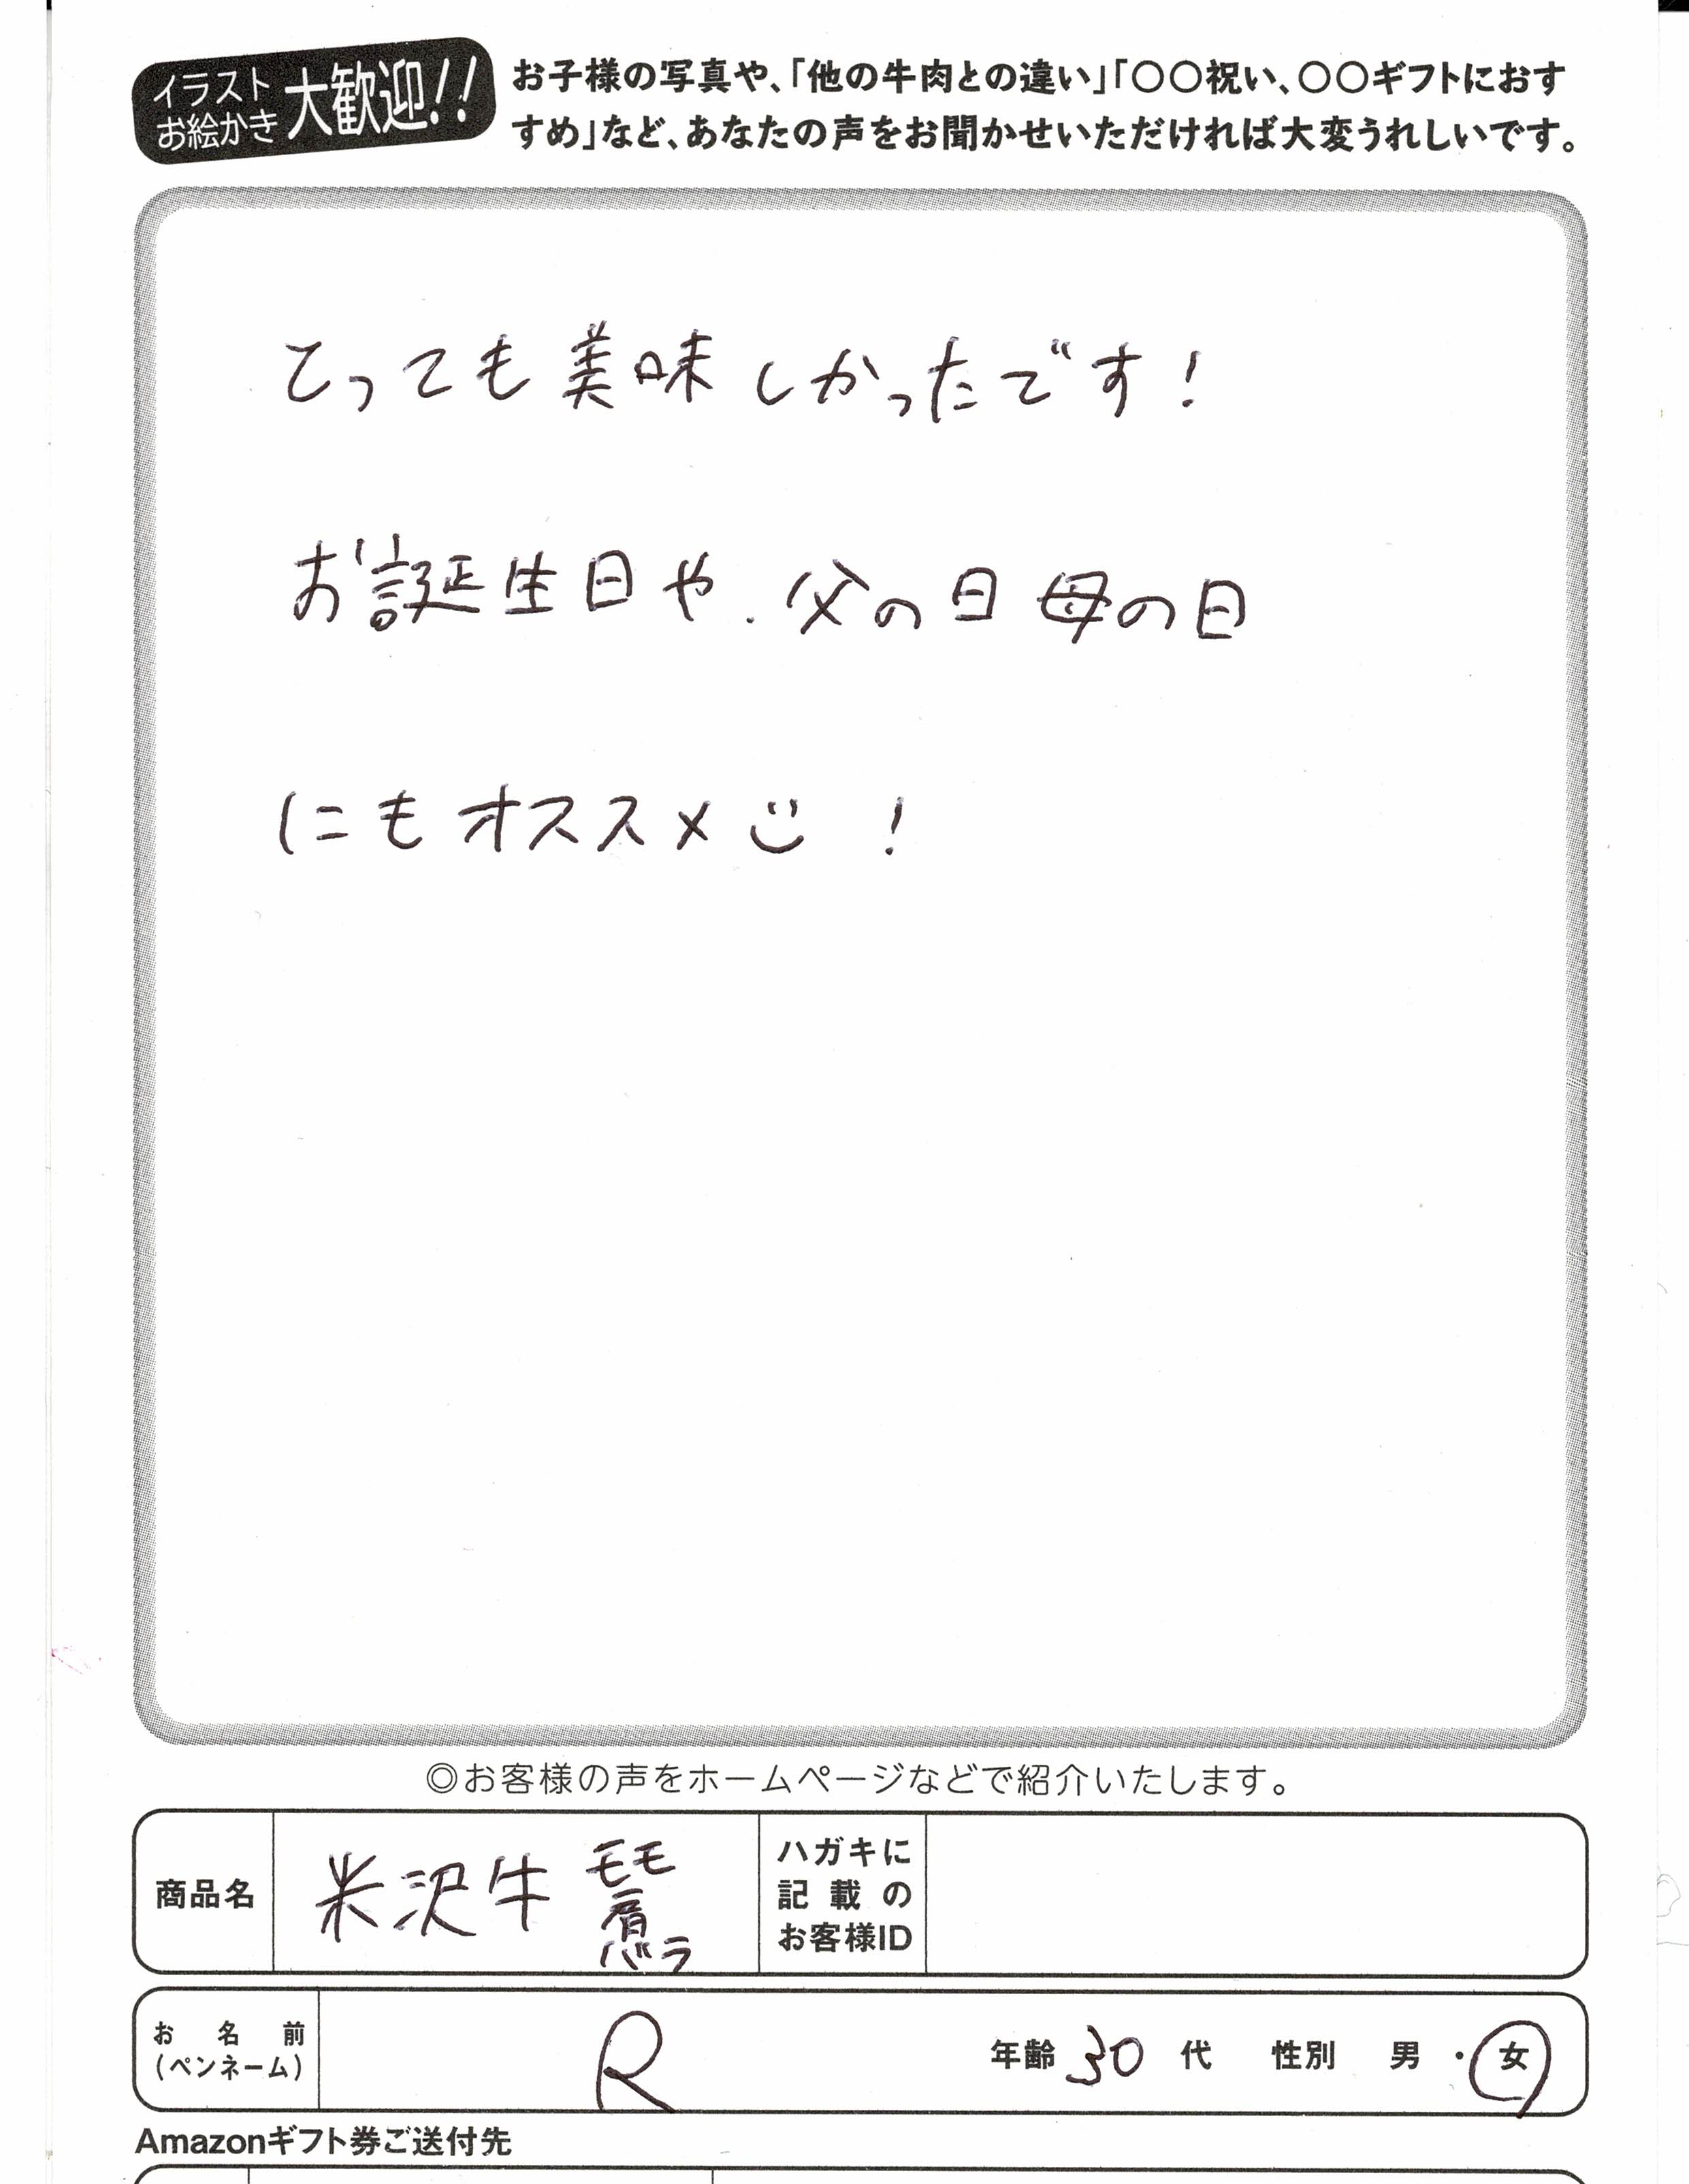 イラスト
お絵かき
大歓迎!!
お子様の写真や、「他の牛肉との違い」「〇〇祝い、〇〇ギフトにおす
すめ」など、あなたの声をお聞かせいただければ大変うれしいです。
とっても美味しかったです!
お誕生日や、父の日母の日
にもオススメ!
◎お客様の声をホームページなどで紹介いたします。
商品名
米沢牛
モモ
肩
バラ
ハガキに
記載の
お客様ID
お名前
(ペンネーム)
R
年齢 30代 性別 男・女
Amazonギフト券ご送付先